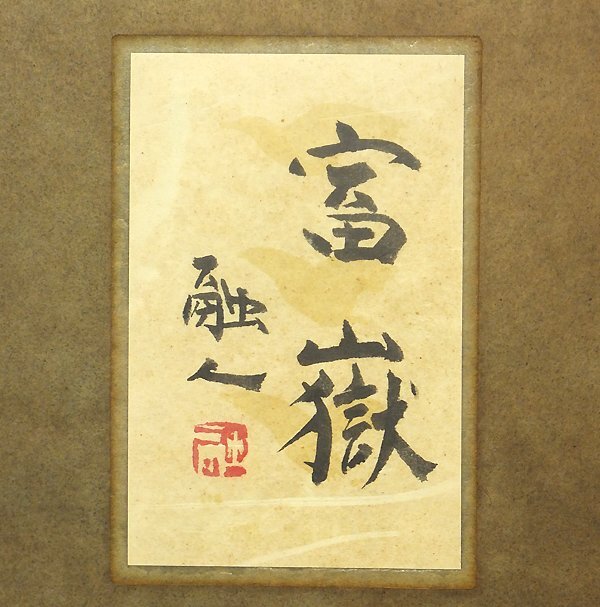 富嶽
融人
融